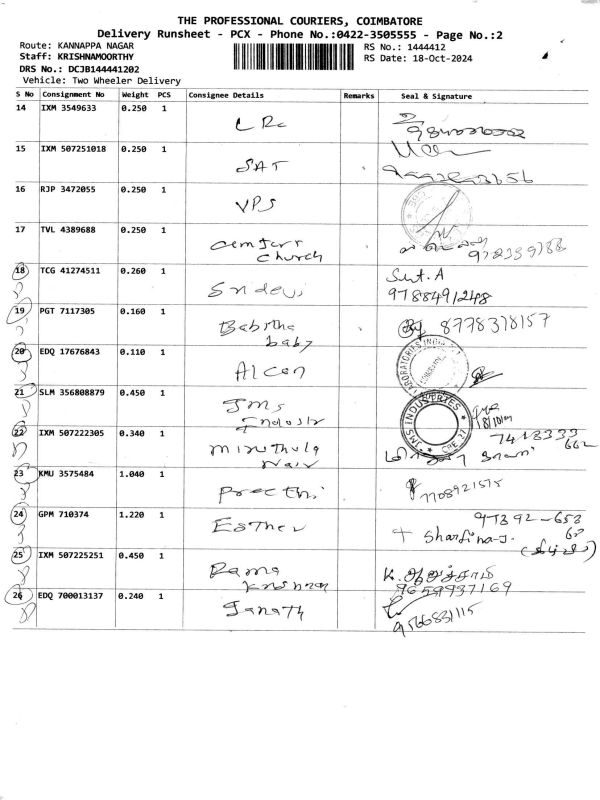 THE PROFESSIONAL COURIERS, COIMBATORE
Delivery Runsheet - PCX - Phone No.:0422-3505555 - Page No.:2
Route: KANNAPPA NAGAR RS No.: 1444412
Staff: KRISHNAMOORTHY RS Date: 18-Oct-2024
DRS No.: DCJB144441202
Vehicle: Two Wheeler Delivery
S No Consignment No Weight PCS Consignee Details Remarks Seal & Signature
14 IXM 3549633 0.250 1
15 IXM 507251018 0.250 1 SAT
16 RJP 3472055 0.250 1 VPS
17 TVL 4389688 0.250 1
church
18 TCG 41274511 0.260 1 Sridevi Sent.A
9788491248
19 PGT 7117305 0.160 1 Babitha 8778318157
baby
20 EDQ 17676843 0.110 1 Alcon
LABORATORIES
21 SLM 356808879 0.450 1 JMS
JMS INDUSTRIES
CBE-27
22 IXM 507222305 0.340 1 Miruthula 7418333
Nair 662
23 KMU 3575484 1.040 1 Preethi 7708921575
24 GPM 710374 1.220 1 Esther 97392-653
25 IXM 507225251 0.450 1 Rama
Krishnan 9659937169
26 EDQ 700013137 0.240 1 Janath
9566831115